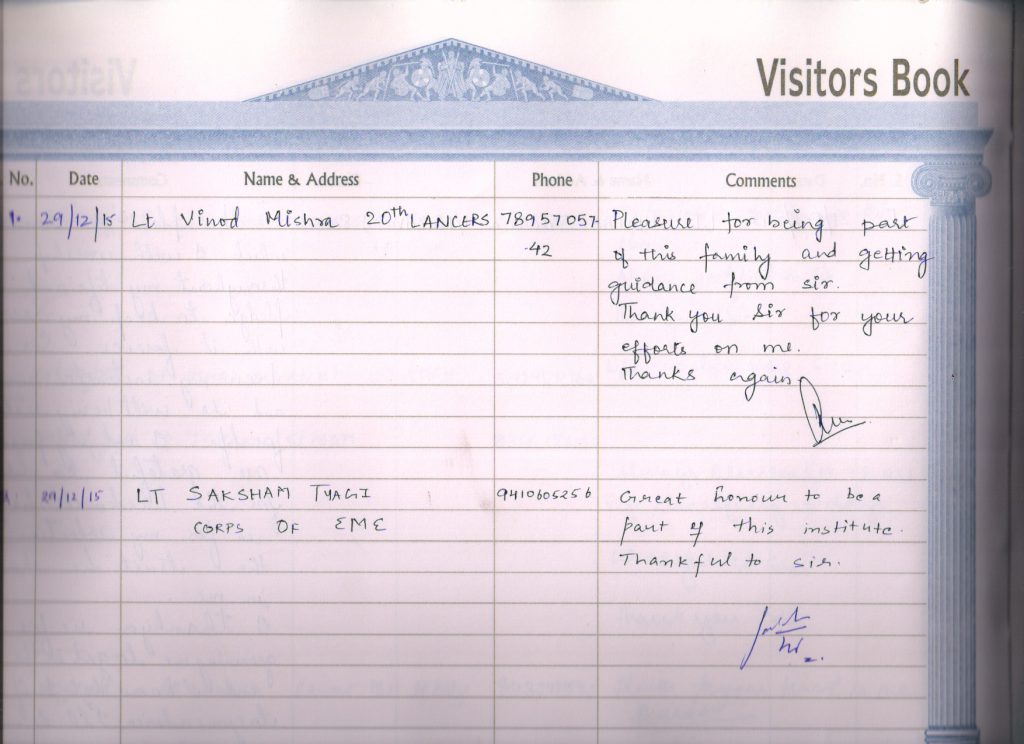 Visitors Book
No. Date Name & Address Phone Comments
1. 29/12/15 Lt Vinod Mishra 20th LANCERS 78957057 Pleasure for being part
42 of this family and getting
guidance from sir.
Thank you Sir for your
efforts on me.
Thanks again.
29/12/15 LT SAKSHAM TYAGI 9410605256 Great honour to be a
CORPS OF EME part of this institute.
Thankful to sir.